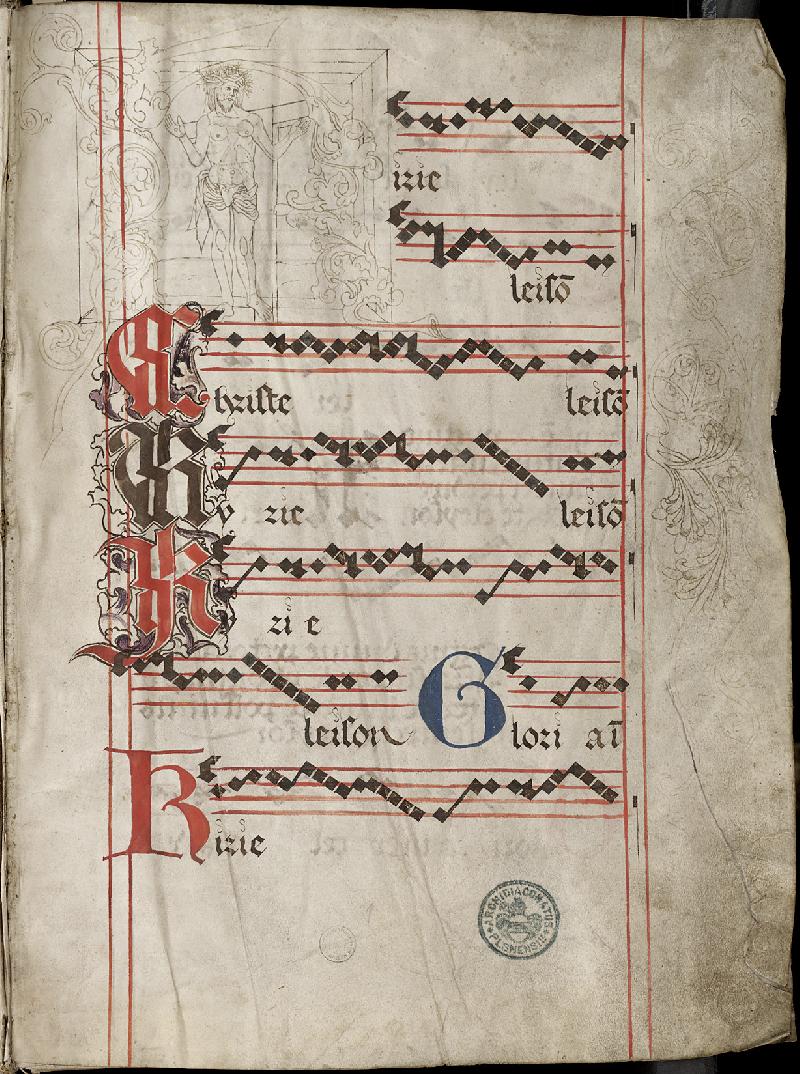 irie
leisō
Christe leisō
Ky rie leisō
K ri e
leison Glori aī
Kirie
ARCHIDIACONATUS PLSNENSIS